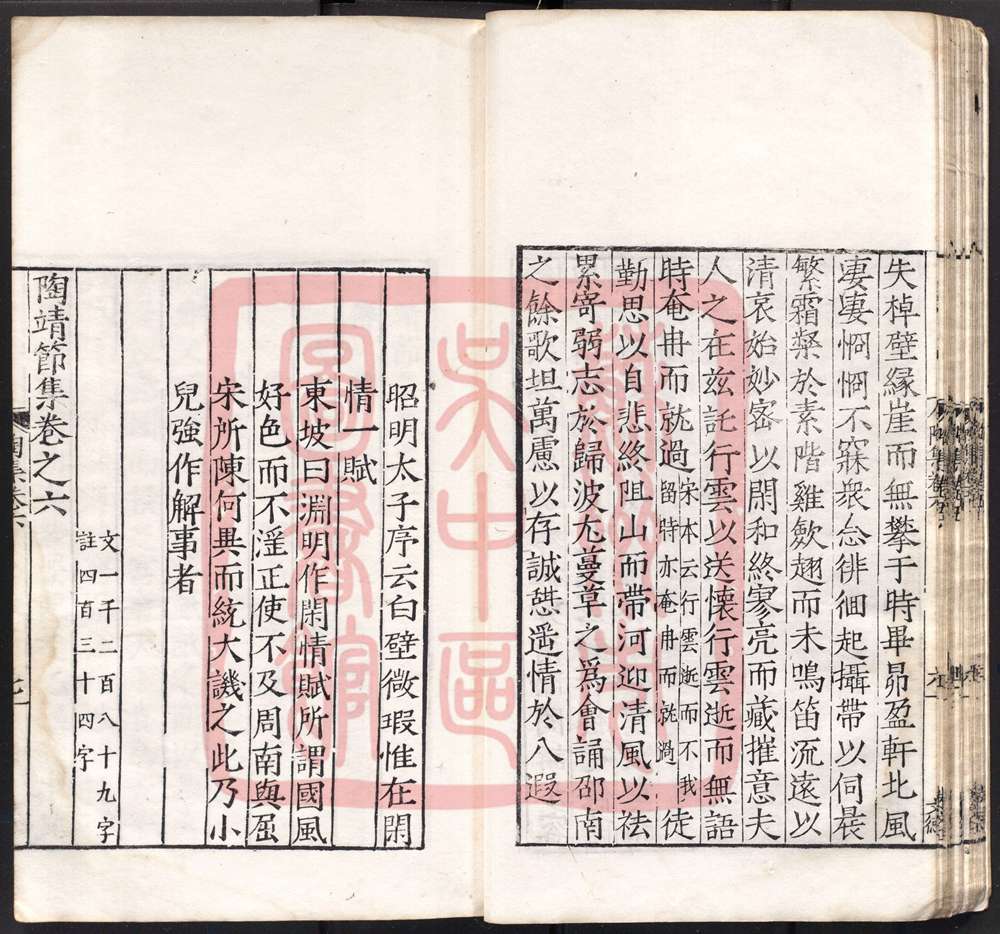 失棹譬縁崖而無攀于時畢昴盈軒北風
淒淒㤯㤯不寐衆念徘徊起攝帶以伺晨
繁霜粲於素階雞歛翅而未鳴笛流遠以
清哀始妙宻以閒和終寥亮而藏摧意夫
人之在兹託行雲以送懐行雲逝而無語
時奄冉而就過
宋本云行雲逝而不我
留時亦奄冉而就過
徒
勤思以自悲終阻山而帶河迎清風以袪
累寄弱志於歸波尤蔓草之為會誦邵南
之餘歌坦萬慮以存誠憇遥情於八遐
昭明太子序云白璧微瑕惟在閑
情一賦
東坡曰淵明作閑情賦所謂國風
好色而不淫正使不及周南與屈
宋所陳何異而統大譏之此乃小
兒強作解事者
文一千二百八十九字
註四百三十四字
陶靖節集卷之六
陶集卷六
七